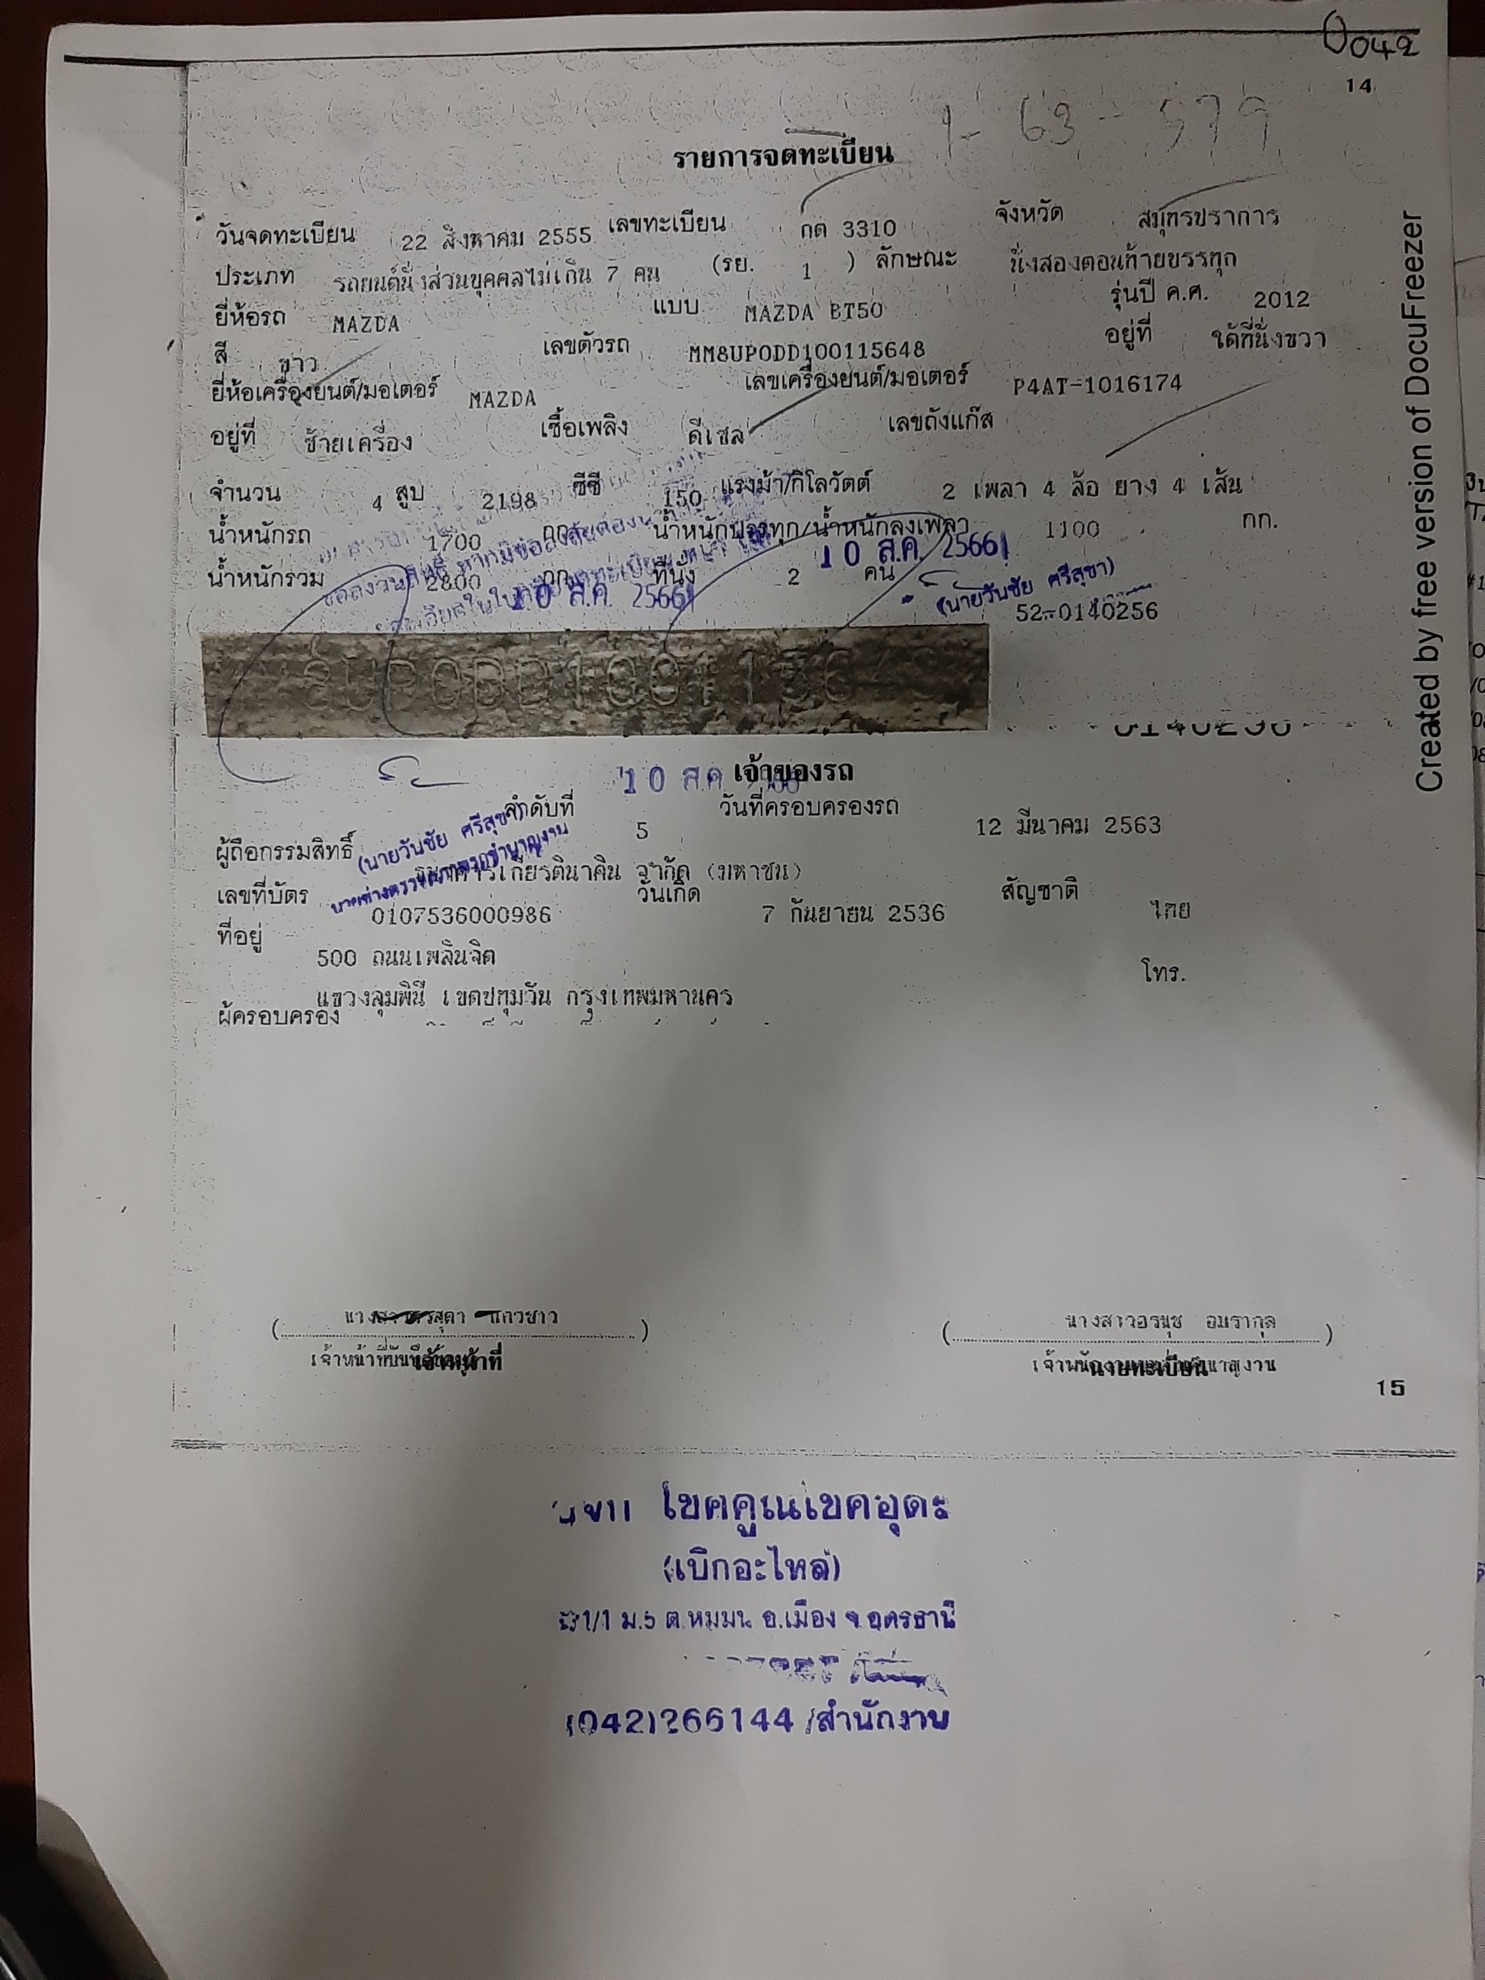 0042
14
1-63-579
รายการจดทะเบียน
วันจดทะเบียน 22 สิงหาคม 2555 เลขทะเบียน กต 3310 จังหวัด สมุทรปราการ
ประเภท รถยนต์นั่งส่วนบุคคลไม่เกิน 7 คน (รย. 1 ) ลักษณะ นั่งสองตอนท้ายบรรทุก
ยี่ห้อรถ MAZDA แบบ MAZDA BT50 รุ่นปี ค.ศ. 2012
สี ขาว เลขตัวรถ MM8UPODD100115648 อยู่ที่ ใต้ที่นั่งขวา
ยี่ห้อเครื่องยนต์/มอเตอร์ MAZDA เลขเครื่องยนต์/มอเตอร์ P4AT-1016174
อยู่ที่ ซ้ายเครื่อง เชื้อเพลิง ดีเซล เลขถังแก๊ส
จำนวน 4 สูบ 2198 ซีซี 150 แรงม้า/กิโลวัตต์ 2 เพลา 4 ล้อ ยาง 4 เส้น
น้ำหนักรถ 1700 กก. น้ำหนักบรรทุก/น้ำหนักลงเพลา 1100 กก.
น้ำหนักรวม 2800 กก. ที่นั่ง 2 คน
10 ส.ค. 2566
10 ส.ค. 2566
(นายวันชัย ศรีสุขา)
52-0140256
เจ้าของรถ
10 ส.ค.
ลำดับที่ 5 วันที่ครอบครองรถ 12 มีนาคม 2563
(นายวันชัย ศรีสุขา)
ผู้ถือกรรมสิทธิ์ ธนาคารเกียรตินาคิน จำกัด (มหาชน)
เลขที่บัตร 0107536000986 วันเกิด 7 กันยายน 2536 สัญชาติ ไทย
ที่อยู่ 500 ถนนเพลินจิต
โทร.
แขวงลุมพินี เขตปทุมวัน กรุงเทพมหานคร
ผู้ครอบครอง
นางสาวอรนุช อมรากุล
เจ้าหน้าที่
นายทะเบียน
15
โขคคูณโขคอุดร
(เบิกอะไหล่)
ม.5 ต.หมูม่น อ.เมือง จ.อุดรธานี
(042)266144/สำนักงาน
Created by free version of DocuFreezer